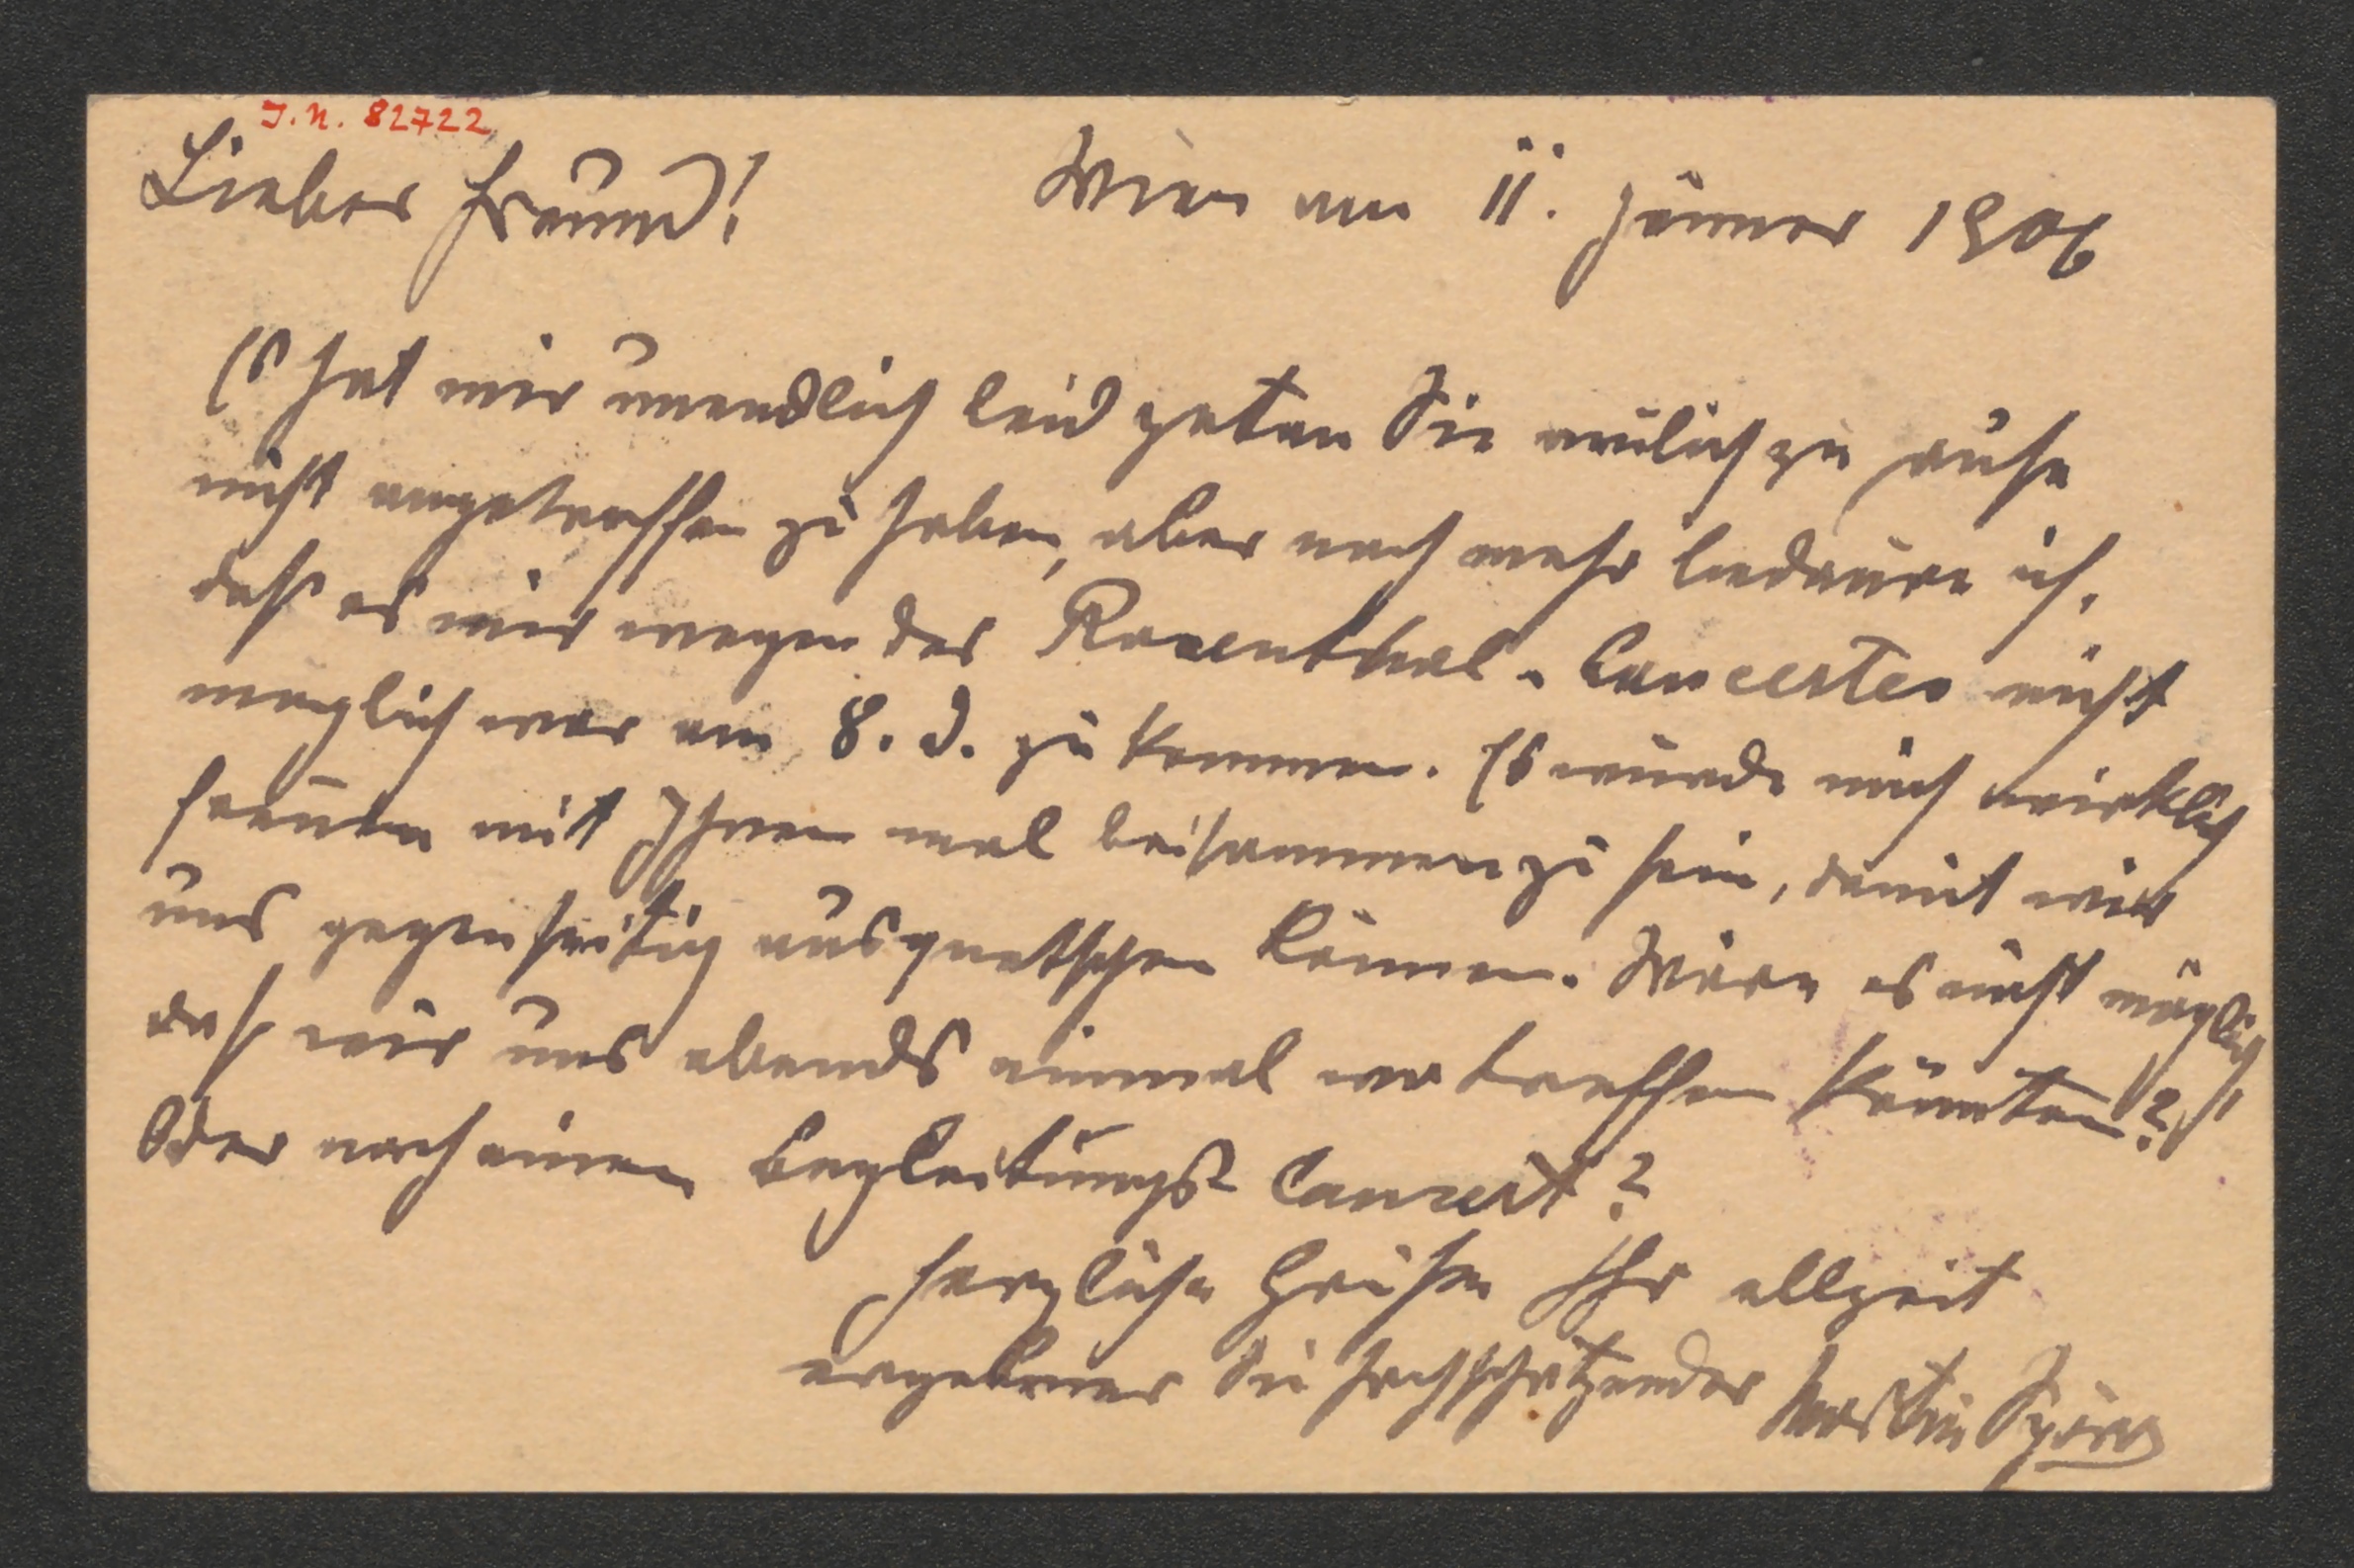 J.N. 82722
Lieber Freund! Wien am 11. Jänner 1906
Es hat mir unendlich leid getan Sie neulich zu Hause
nicht angetroffen zu haben, aber noch mehr bedaure ich,
daß es mir wegen des Rosenthal-Concertes nicht
möglich war am 8. d. zu kommen. Es würde mich wirklich
freuen mit Ihnen mal beisammen zu sein, damit wir
uns gegenseitig ausquetschen können. Wäre es nicht möglich
daß wir uns abends einmal wo treffen könnten?
Oder nach einem Begleitungs-Concert?
Herzliche Grüße Ihr allzeit
ergebener Sie hochschätzender Martin Spörr